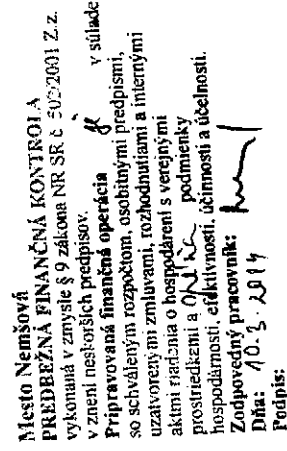 Mesto Nemšová
PREDBEŽNÁ FINANČNÁ KONTROLA
vykonaná v zmysle § 9 zákona NR SR č 502/2001 Z.z.
v znení neskorších predpisov.
Pripravovaná finančná operácia je v súlade
so schváleným rozpočtom, osobitnými predpismi,
uzatvorenými zmluvami, rozhodnutiami a internými
aktmi riadenia o hospodárení s verejnými
prostriedkami a podmienky
hospodárnosti, efektívnosti, účinnosti a účelnosti.
Zodpovedný pracovník:
Dňa: 10.3.2014
Podpis: